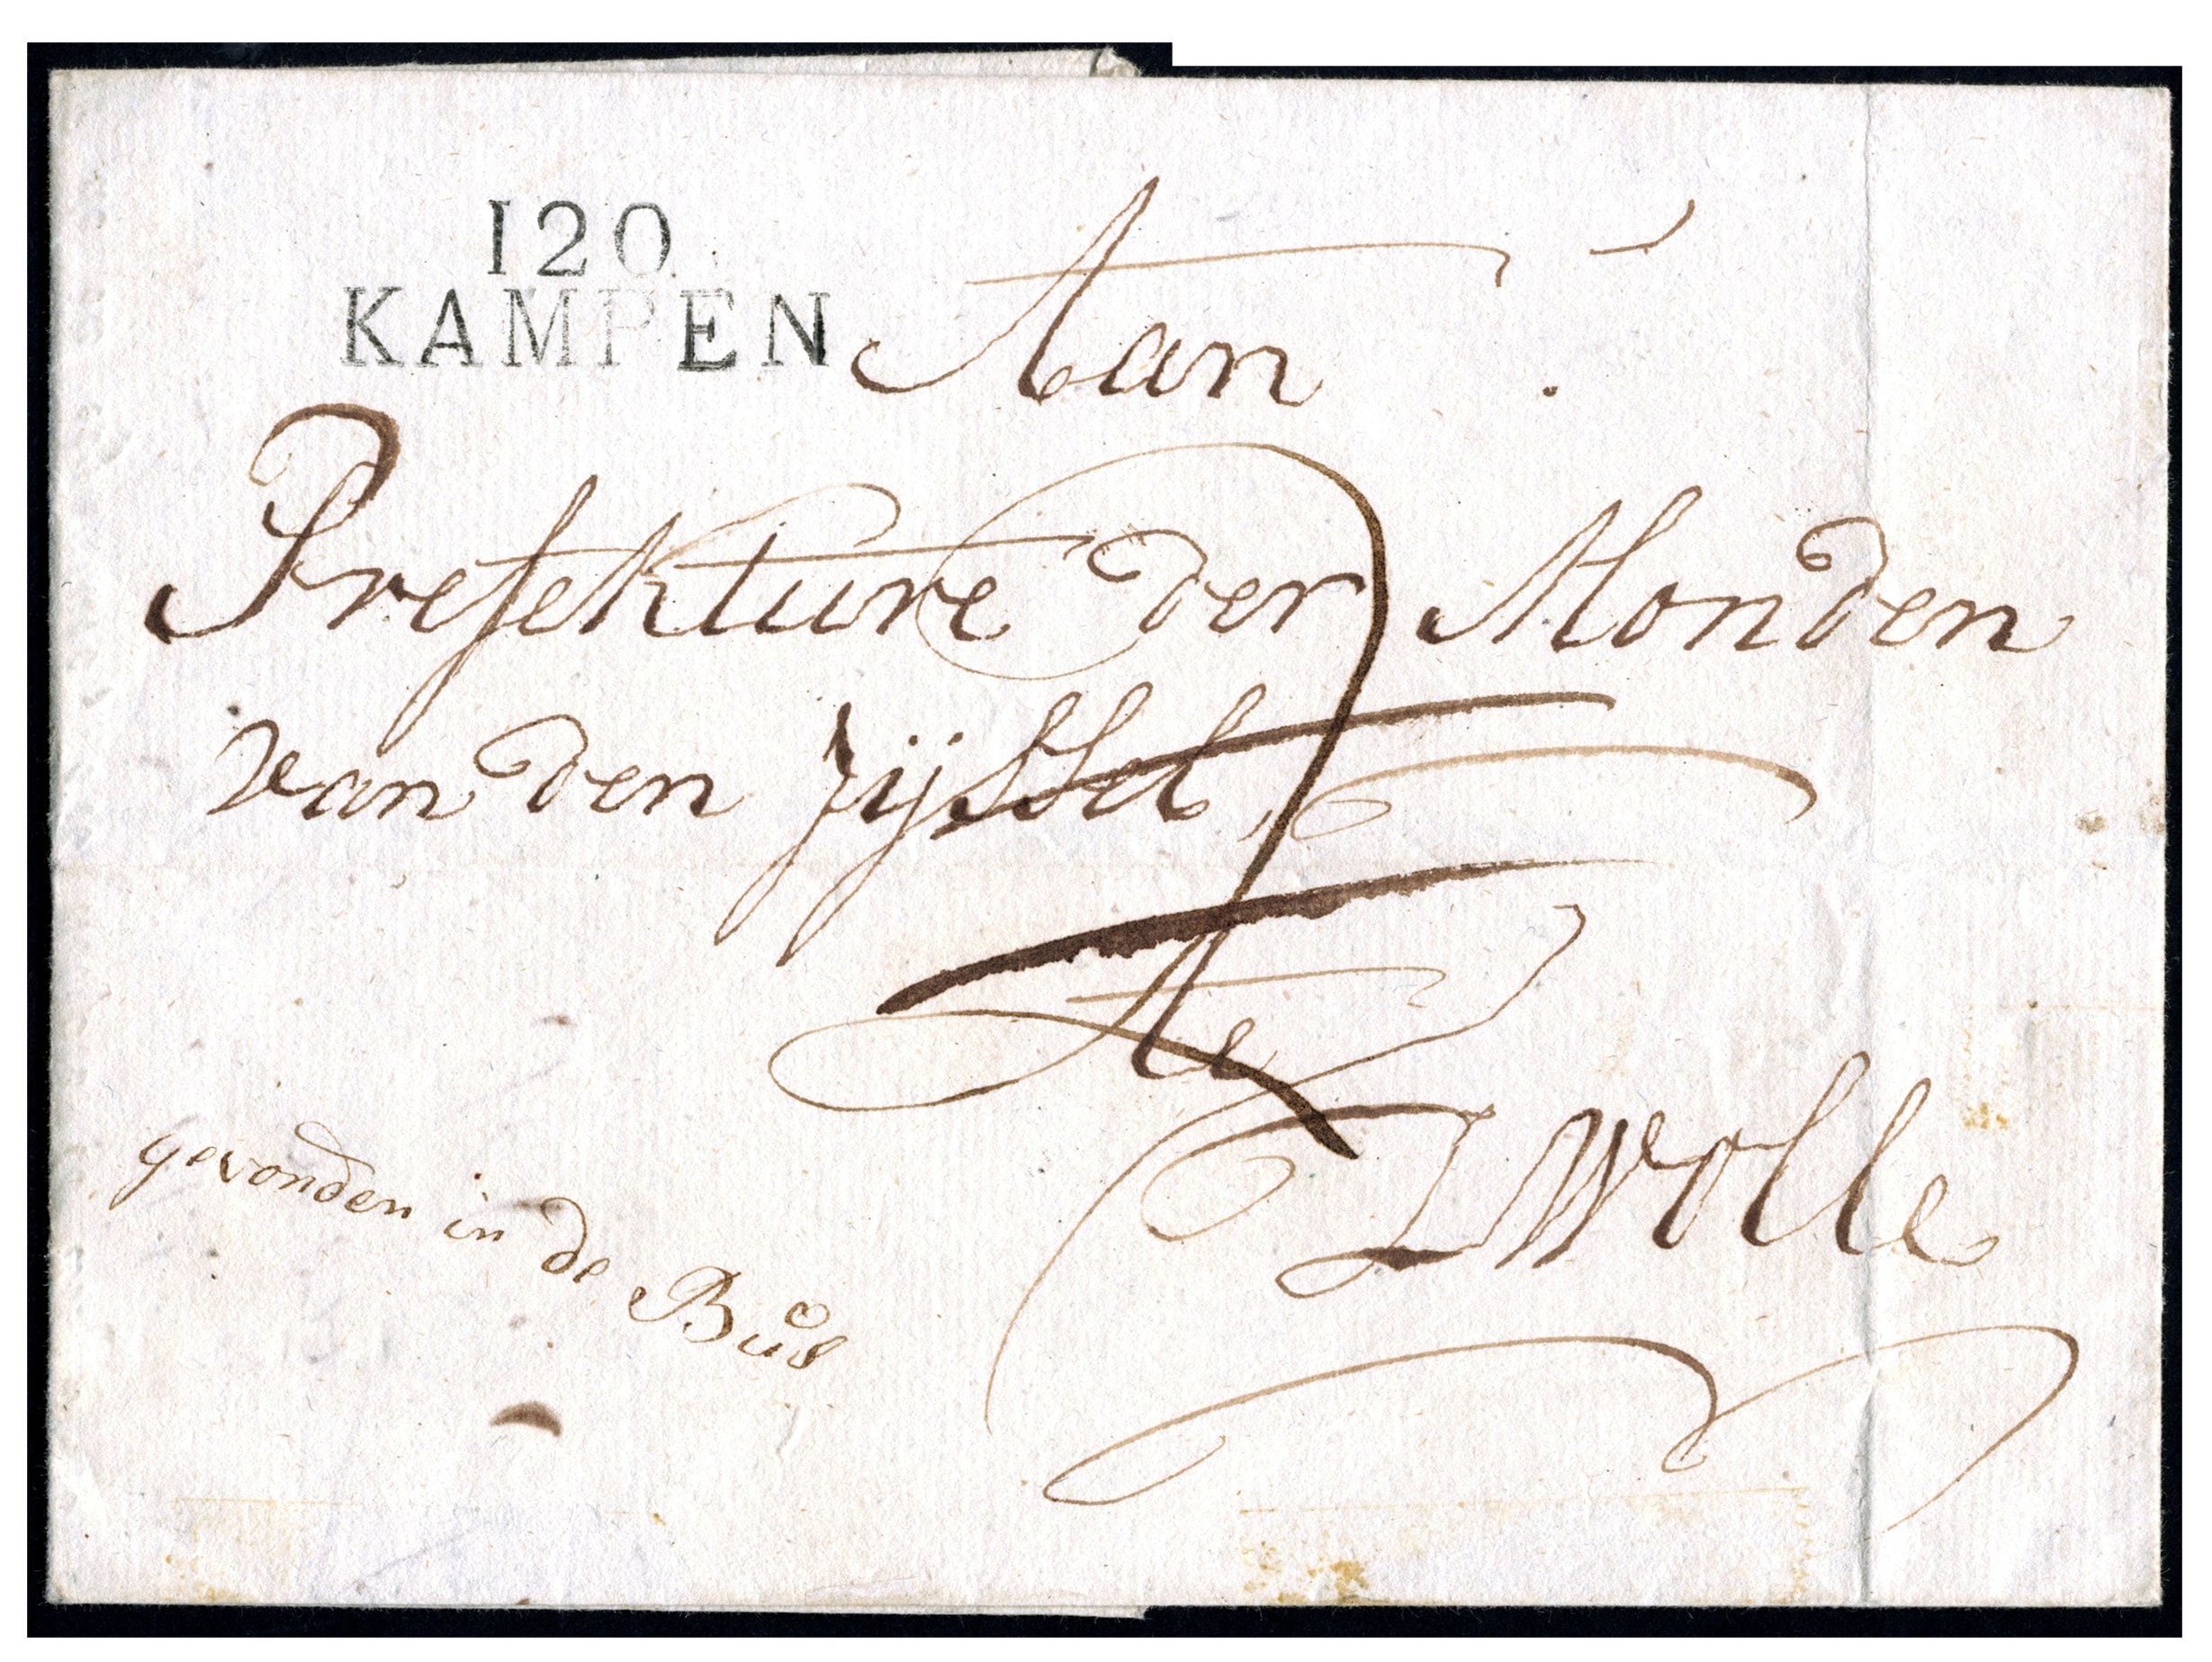 120
KAMPEN
Aan
Prefekture der Monden
van den Iijssel
te
Zwolle
gevonden in de Bus